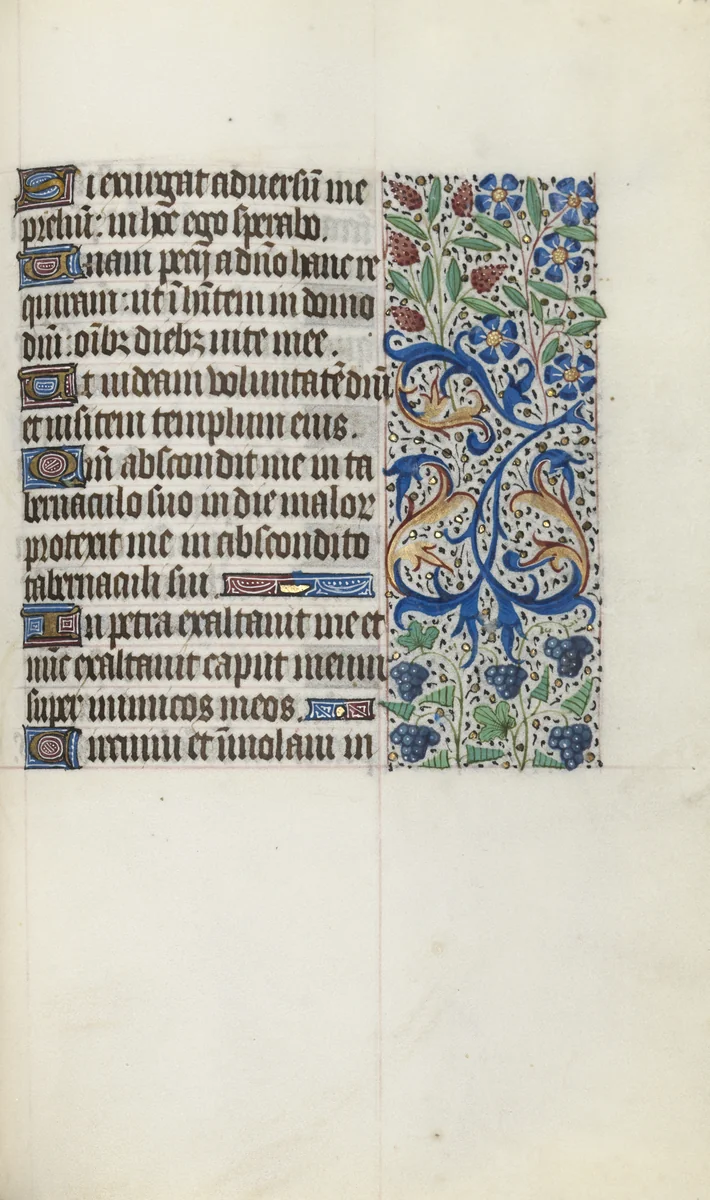 Si exurgat adversū me
preliū: in hoc ego sperabo.
Unam pecij a dño hanc re
quiram: ut ĩhĩtem in domo
dñi: oĩbʒ diebʒ uite mee.
Ut uideam voluntatē dñi
et uisitem templum eius.
Qm̄ abscondit me in ta
bernaculo suo in die maloꝝ
protexit me in abscondito
tabernaculi sui
In petra exaltauit me et
nūc exaltauit caput meum
super inimicos meos.
Circuiui et ĩmolaui in